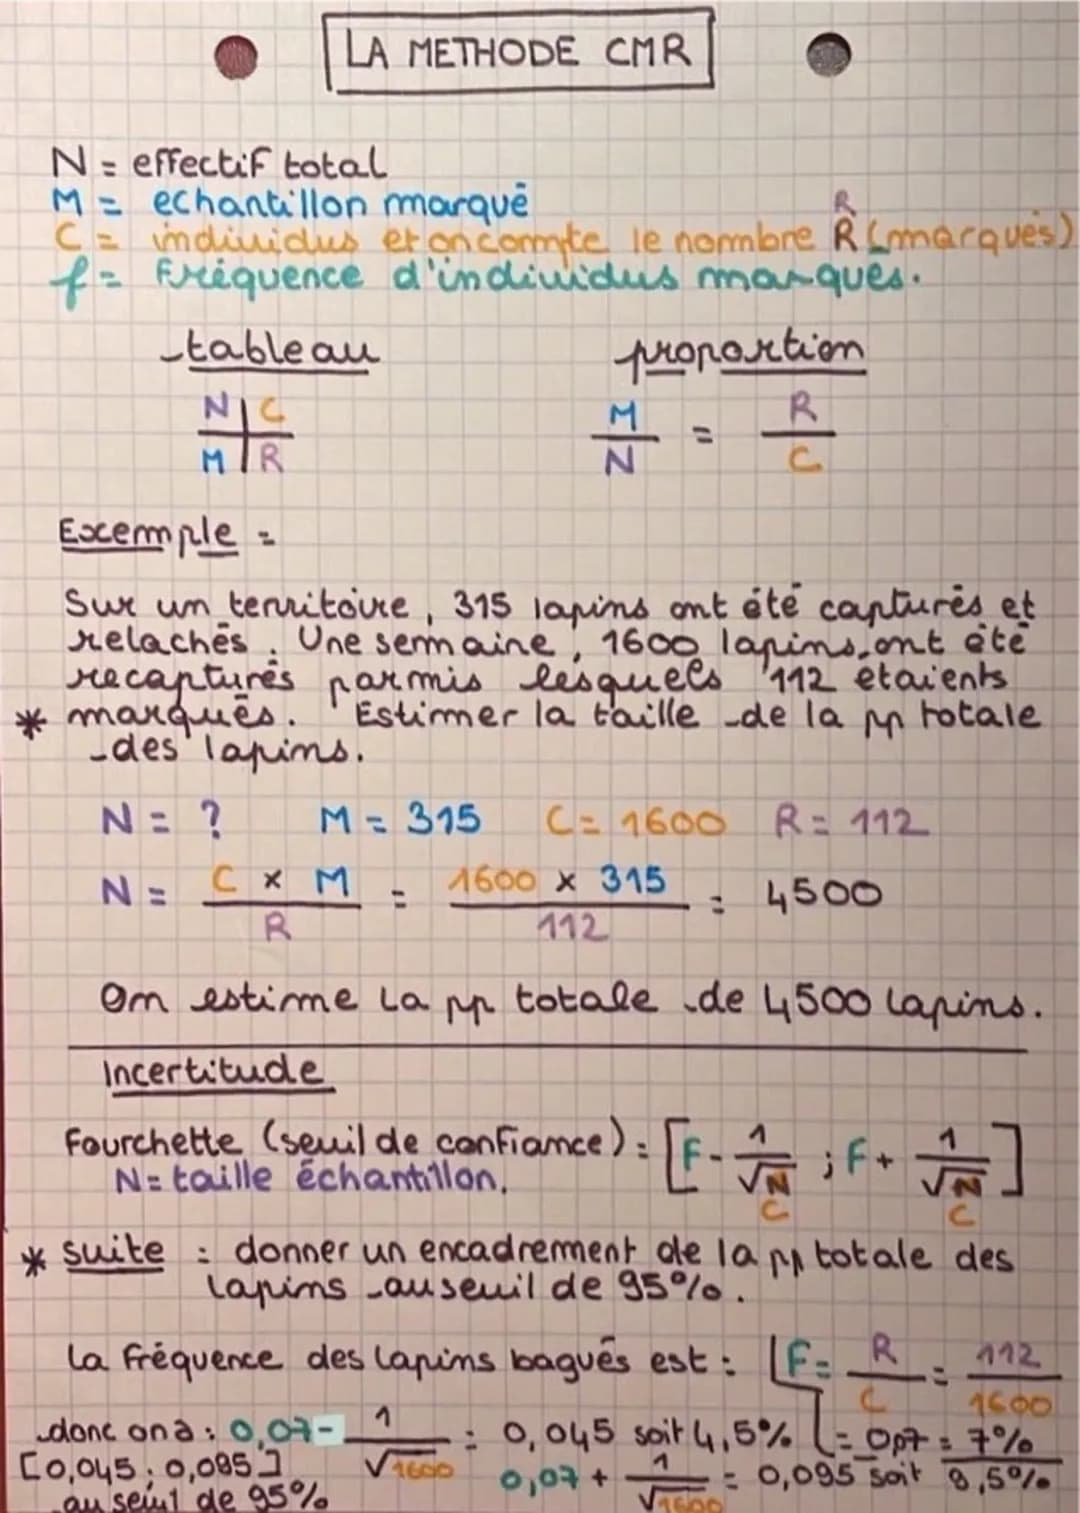 LA METHODE CMR
N = effectif total
M = echantillon marqué
R
C = individus et on compte le nombre R (marqués)
f = Fréquence d'individus marqués.
tableau proportion
N | C M/N = R/C
M | R
Excemple =
Sur un territoire, 315 lapins ont été capturés et
relachés. Une semaine, 1600 lapins, ont été
recapturés parmis lesquels 112 étaients
* marqués. Estimer la taille de la pp totale
des lapins.
N = ? M = 315 C = 1600 R = 112
N = C × M / R = 1600 × 315 / 112 = 4500
On estime la pp totale de 4500 lapins.
Incertitude
Fourchette (seuil de confiance) = [F - 1/√N ; F + 1/√N]
N = taille échantillon. C C
* suite : donner un encadrement de la pp totale des
lapins au seuil de 95%.
la fréquence des lapins bagués est : F = R/C = 112/1600
donc on a : 0,07 - 1/√1600 = 0,045 soit 4,5% = 0,07 = 7%
[0,045 ; 0,095] 0,07 + 1/√1600 = 0,095 soit 9,5%
au seuil de 95%